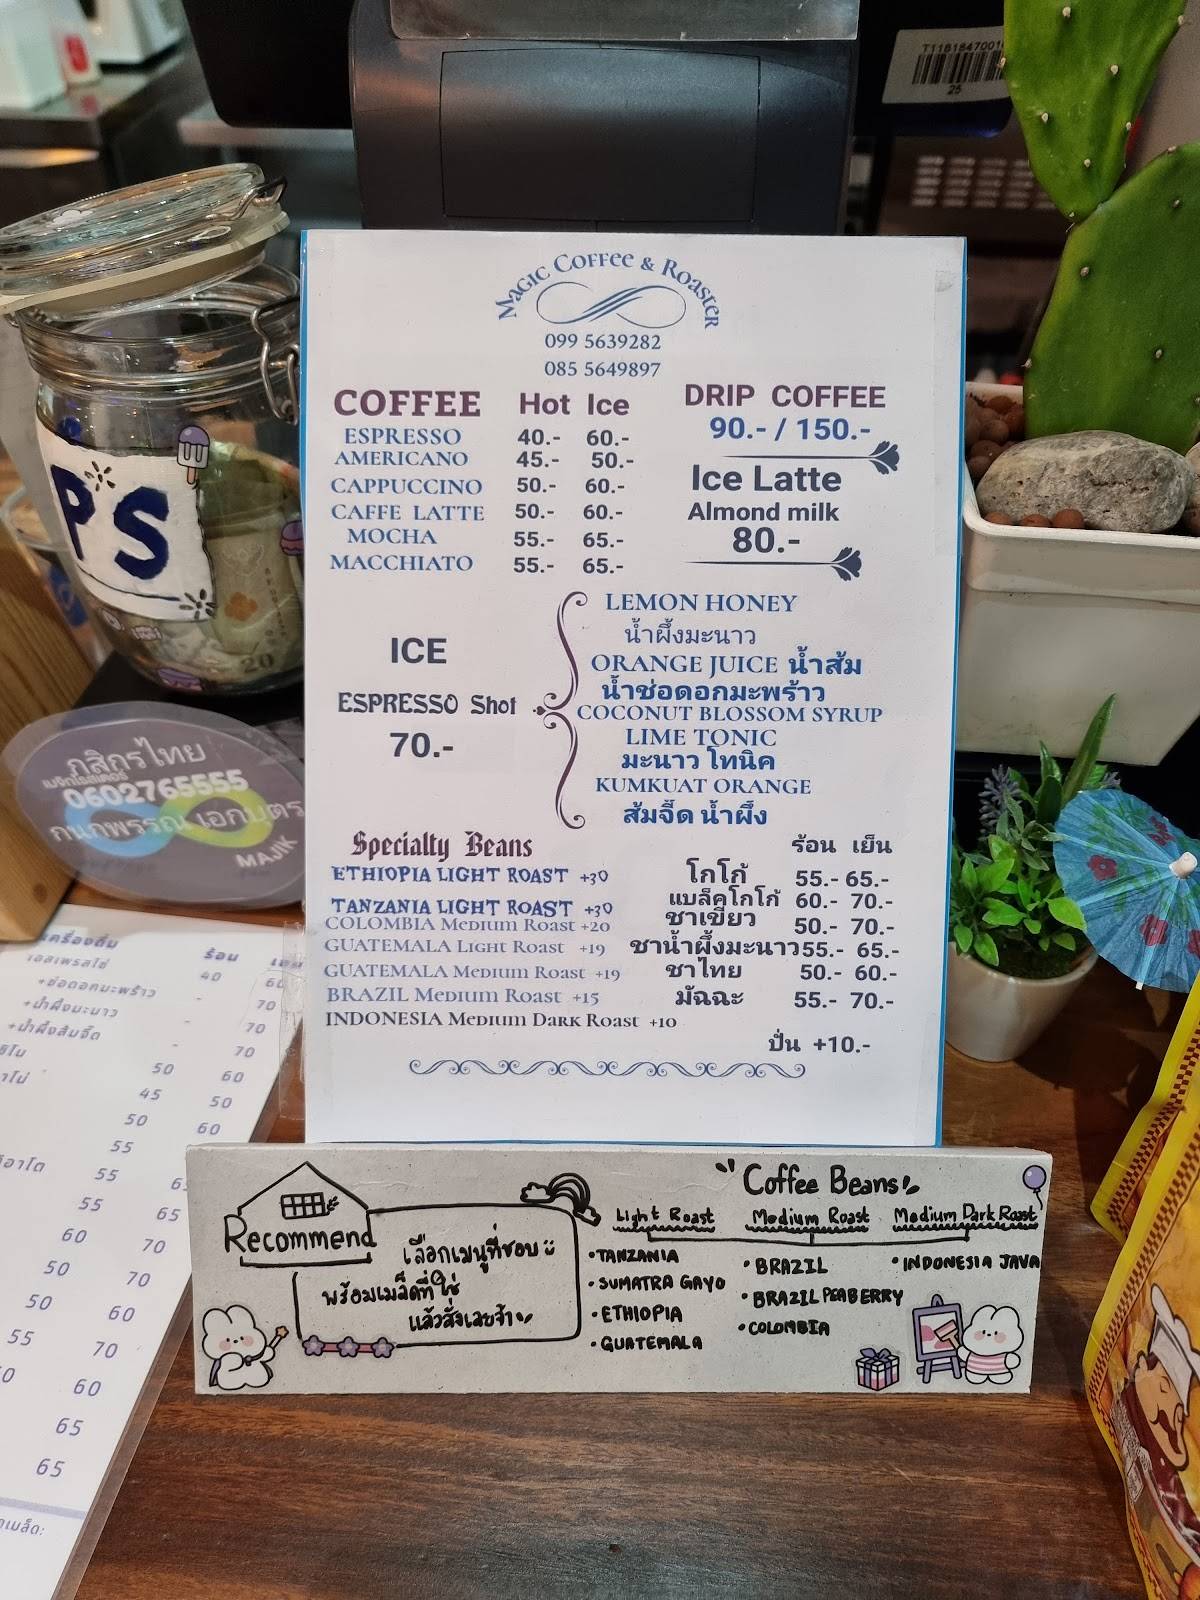 T11818470010
25
MAGIC COFFEE & ROASTER
099 5639282
085 5649897
COFFEE Hot Ice
ESPRESSO 40.- 60.-
AMERICANO 45.- 50.-
CAPPUCCINO 50.- 60.-
CAFFE LATTE 50.- 60.-
MOCHA 55.- 65.-
MACCHIATO 55.- 65.-
DRIP COFFEE
90.- / 150.-
Ice Latte
Almond milk
80.-
ICE
ESPRESSO Shot
70.-
LEMON HONEY
น้ำผึ้งมะนาว
ORANGE JUICE น้ำส้ม
น้ำช่อดอกมะพร้าว
COCONUT BLOSSOM SYRUP
LIME TONIC
มะนาว โทนิค
KUMKUAT ORANGE
ส้มจี๊ด น้ำผึ้ง
Specialty Beans
ETHIOPIA LIGHT ROAST +30
TANZANIA LIGHT ROAST +30
COLOMBIA MEDIUM ROAST +20
GUATEMALA LIGHT ROAST +19
GUATEMALA MEDIUM ROAST +19
BRAZIL MEDIUM ROAST +15
INDONESIA MEDIUM DARK ROAST +10
ร้อน เย็น
โกโก้ 55.- 65.-
แบล็คโกโก้ 60.- 70.-
ชาเขียว 50.- 70.-
ชาน้ำผึ้งมะนาว 55.- 65.-
ชาไทย 50.- 60.-
มัฉฉะ 55.- 70.-
ปั่น +10.-
PS
20
กสิกรไทย
0602765555
กนกพรรณ เอกบุตร
MAJIK
เครื่องดื่ม ร้อน
เอสเพรสโซ่ 40 60
+ช่อดอกมะพร้าว - 70
+น้ำผึ้งมะนาว - 70
+น้ำผึ้งส้มจี๊ด - 70
50 60
45 50
50 60
55
55 65
55 65
60 70
50 70
50 60
55 70
60
65
65
Recommend
เลือกเมนูที่ชอบ
พร้อมเมล็ดที่ใช่
แล้วสั่งเลยจ้า
Coffee Beans
Light Roast
•TANZANIA
•SUMATRA GAYO
•ETHIOPIA
•GUATEMALA
Medium Roast
•BRAZIL
•BRAZIL PEABERRY
•COLOMBIA
Medium Dark Roast
•INDONESIA JAVA